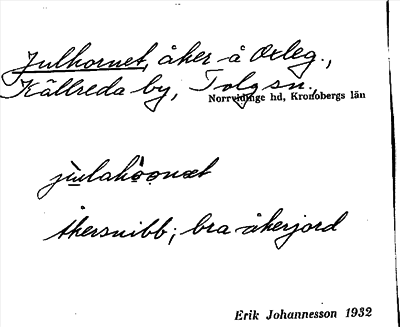 Julhornet, åker å Oxleg.,
Källreda by, Tolg sn.,
Norrvidinge hd, Kronobergs län
julahoonet
åkersnibb; bra åkerjord
Erik Johannesson 1932